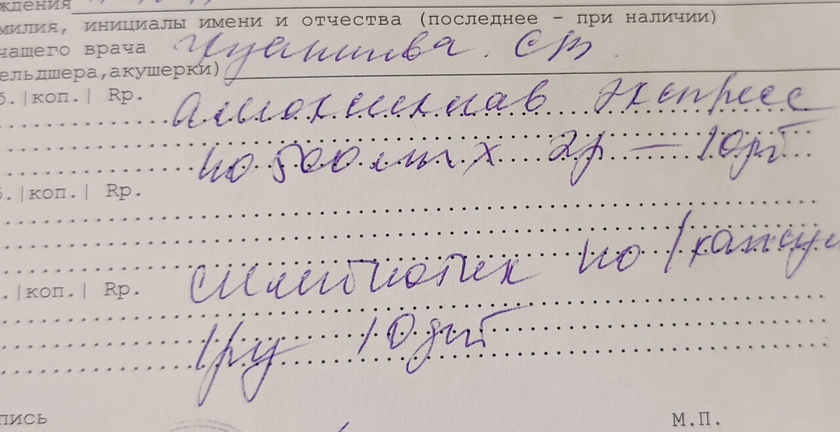 ждения
милия, инициалы имени и отчества (последнее - при наличии)
чащего врача
ельдшера,акушерки)
б.|коп.| Rp. Амоксиклав экспресс
по 500 мг х 2р — 10 дн
б.|коп.| Rp.
.|коп.| Rp. Симбиотик по 1 капсул
1 р 10 дн
пись М.П.